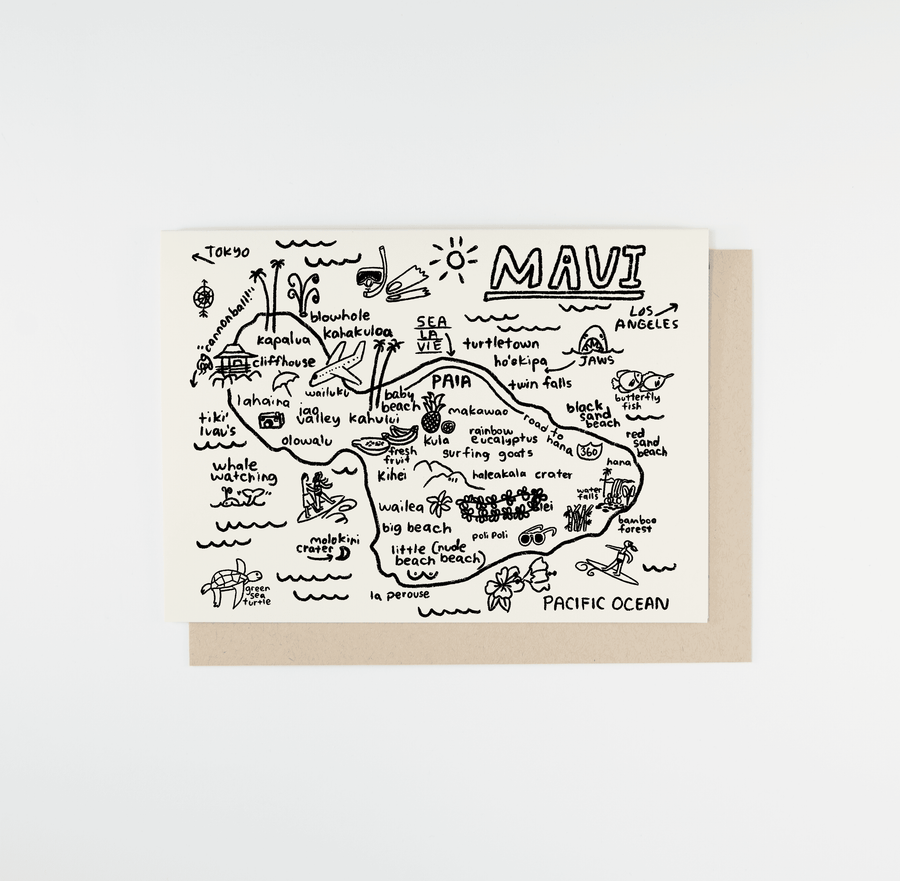 TOKYO
MAUI
LOS
ANGELES
"cannonball!"
blowhole
kahakuloa
SEA
LA
VIE
kapalua
cliffhouse
turtletown
ho'okipa
JAWS
twin falls
PAIA
butterfly
fish
lahaina
wailuku
baby
beach
iao
valley
kahului
makawao
black
sand
beach
tiki
luau's
olowalu
fresh
fruit
kula
rainbow
eucalyptus
road to
hana
360
red
sand
beach
surfing goats
hana
whale
watching
kihei
haleakala crater
wailea
lei
water
falls
big beach
poli poli
bamboo
forest
molokini
crater
little (nude
beach beach)
green
sea
turtle
la perouse
PACIFIC OCEAN